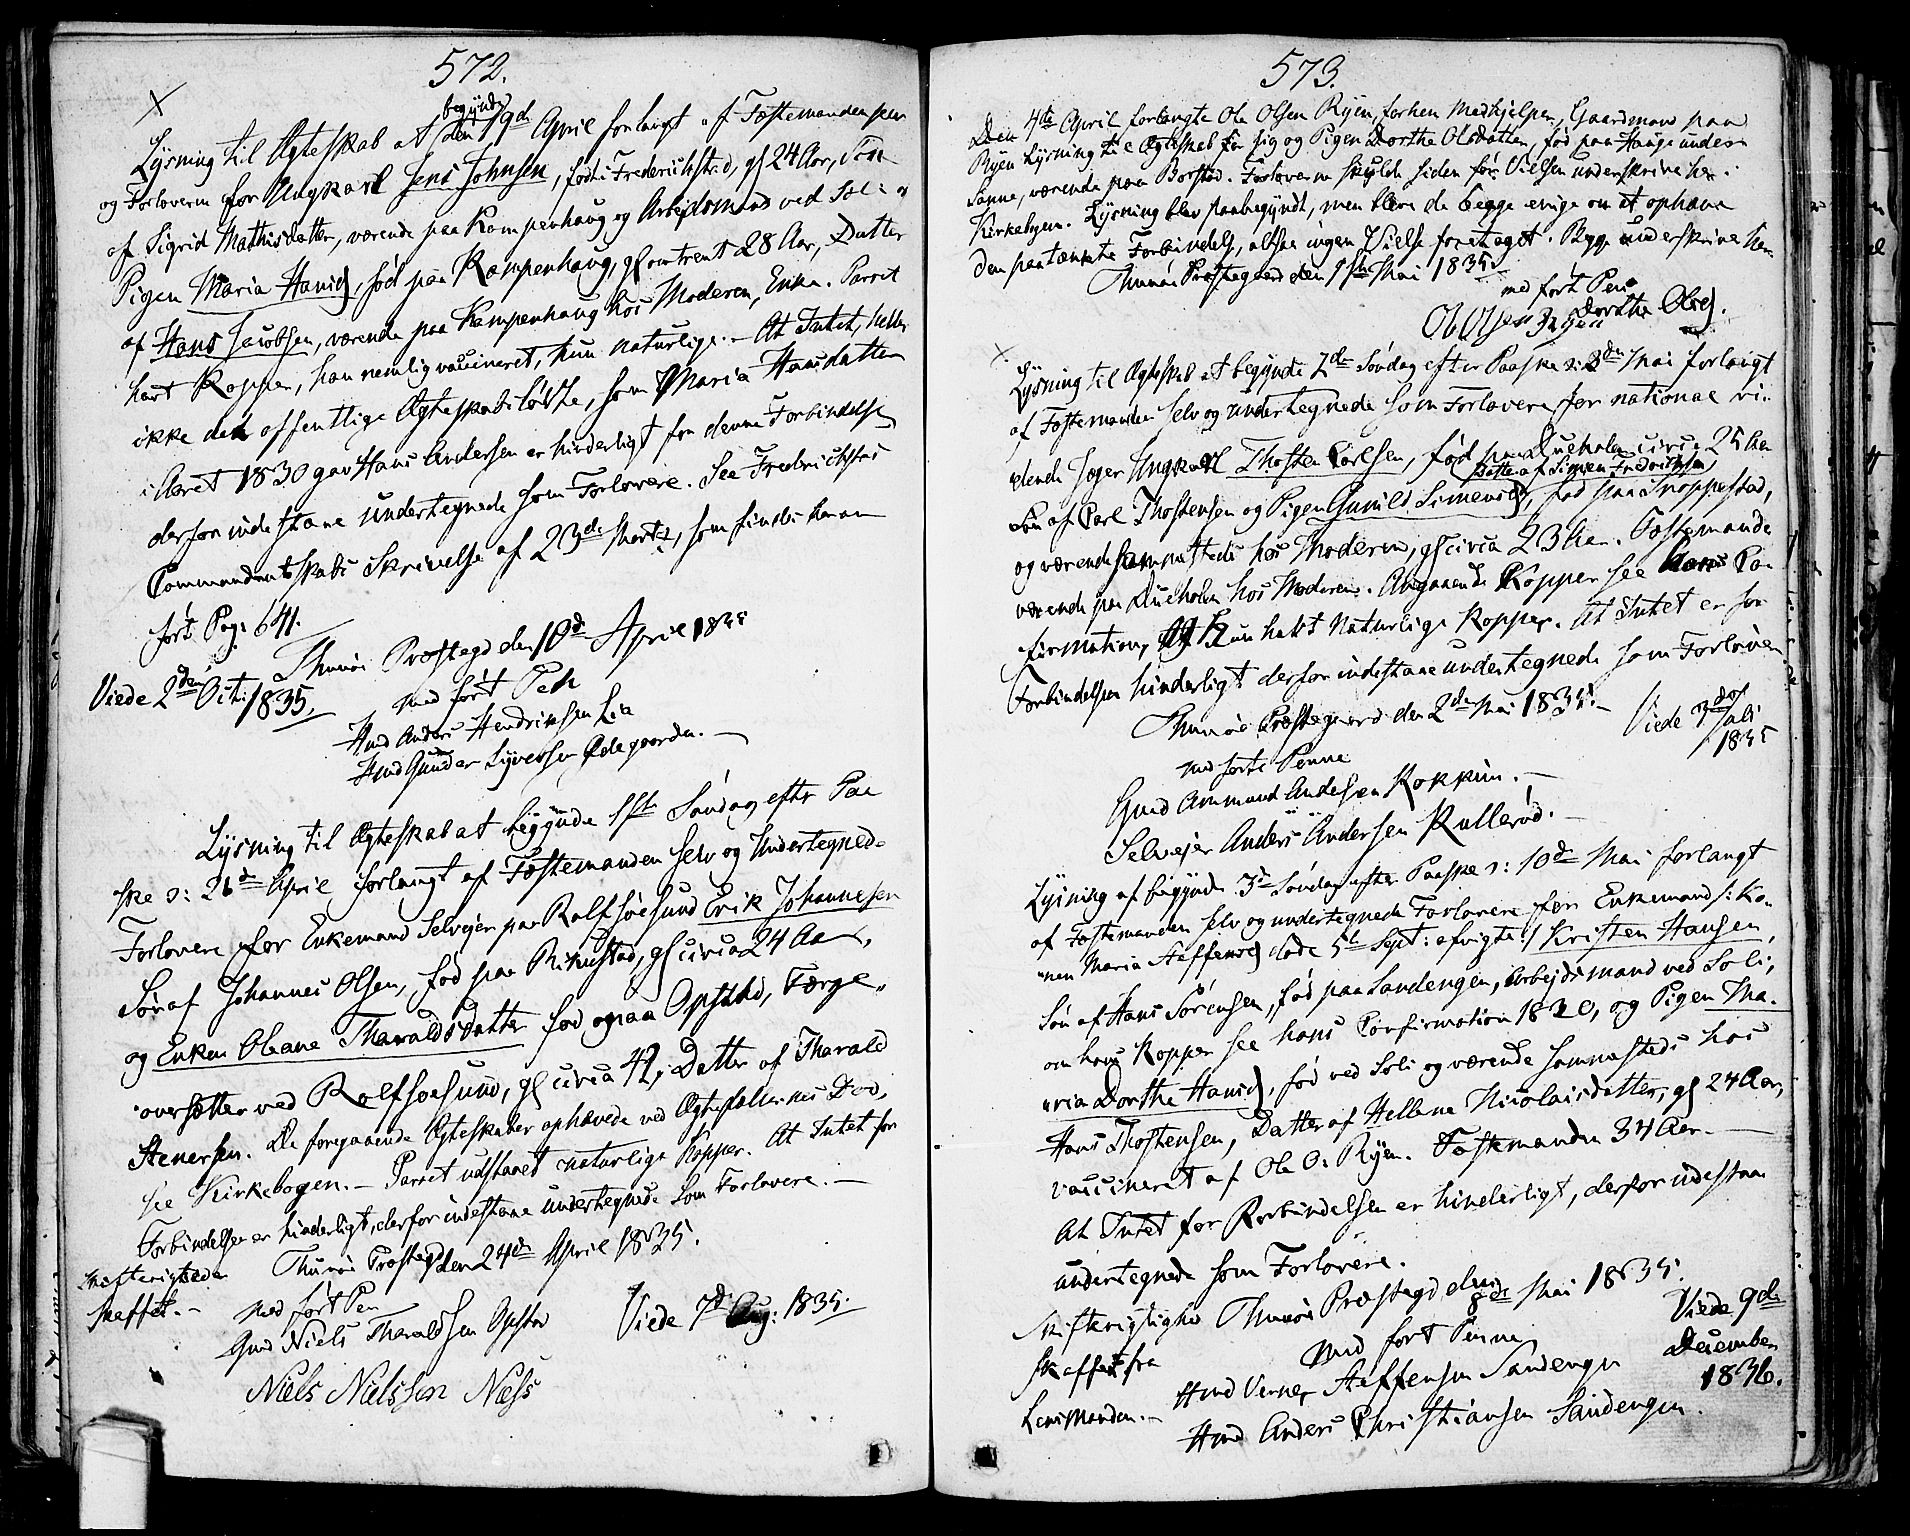 572.
Lysning til Ægteskab at begynde den 19de April forlangt af Fæstemanden
og Forloverne for Ungkarl Jens Johnsen, født i Frederichstad, gl 24 Aar, Søn
af Sigrid Mathisdatter, værende paa Kampenhaug og Arbejdsmand ved Soli og
Pigen Maria Hansd, fød paa Kampenhaug, gl omtrent 28 Aar, Datter
af Hans Jacobsen, værende paa Kampenhaug hos Moderen, Enke. Parret
havt Kopper, han nemlig vaccineret, hun naturlige. - At Intet, heller
ikke det offentlige Ægteskabsløfte, som Maria Hansdatter
i Aaret 1830 gav Hans Andersen er hinderligt for denne Forbindelse
derfor indestaae undertegnede som Forlovere. See Fredrichstad
Commandantskabs Skrivelse af 23de Marts, som findes
ført Pag: 641.
Thunøe Præstegd den 10de April 1835
Viede 2den Oct: 1835.
med ført Pen
Hmd Anders Hendriksen Lie
Hmd Gunder Syversen Ødegaarden. -
Lysning til Ægteskab at begynde 1ste Søndag efter Paa
ske ɔ: 26de April forlangt af Fæstemanden selv og Undertegnede
Forlovere for Enkemand Selvejer paa Rolfsøesund Erik Johannesen
Søn af Johannes Olsen, fød paa Rikustad, gl circa 24 Aar,
og Enken Oleane Tharaldsdatter fød paa Opstad, Færge-
oversætter ved Rolfsøesund, gl circa 42, Datter af Tharald
Stenersen. De foregaaende Ægteskaber ophævede ved Ægtefællernes Død,
see Kirkebogen. - Parret udstaaet naturlige Kopper. At Intet for
Forbindelsen er hinderligt, derfor indestaae undertegnede som Forlovere. -
Thunøe Præstegd den 24de April 1835.
Skifterigtighed
skaffet. -
med ført Pen
Gmd Niels Tharaldsen Opstad
Viede 7de Aug: 1835.
Niels Nielssen Næss
573.
Den 4de April forlangte Ole Olsen Ryen, forhen Medhjelper, Gaardmand paa
Ryen Lysning til Ægteskab for sig og Pigen Dorthe Olsdatter, fød paa Hauge under
Sanne, værende paa Borstad. Forloverne skulde siden før Vielsen underskrive her i
Kirkebogen. Lysning blev paabegyndt, men bleve de begge enige om at ophæve
den paatænkte Forbindelse, altsaa ingen Vielse foretaget. Begge underskrive her
Thunøe Præstegaard den 1ste Mai 1835.
med ført Pen
Ole Olsen Ryen Dorthe Olsd.
Lysning til Ægteskab at begynde 2den Søndag efter Paaske ɔ: 3den Mai forlangt
af Fæstemanden selv og undertegnede som Forlovere for national ri-
dende Jæger Ungkarl Thosten Carlsen, fød paa Dueholen circa 25 Aar
Datter af Simen Fredrichsen
Søn af Carl Thostensen og Pigen Gunild Simensd, fød paa Snoppestad,
og værende sammesteds hos Moderen, gl circa 23 Aar. Fæstemanden
værende paa Dueholen hos Moderen. Angaaende Kopper see hans Con
firmation, og Hun havt naturlige Kopper. At Intet er for
Forbindelsen hinderligt derfor indestaae undertegnede som Forlovere
Thunøe Præstegaard den 2den Mai 1835. -
Viede 3die Juli
1835
med førte Penne
Gmd Ammund Andersen Kokkim. -
Selvejer Anders Andersen Kullerød. -
Lysning at begynde 3die Søndag efter Paaske ɔ: 10de Mai forlangt
af Fæstemanden selv og undertegnede Forlovere for Enkemand /: Ko-
nen Maria Staffensd døde 5te Sept: afvigte :/ Kristen Hansen,
Søn af Hans Sørensen, fød paa Sandengen, Arbejdsmand ved Soli;
om hans Kopper see hans Confirmation 1820, og Pigen Ma-
ria Dorthe Hansd, fød ved Soli og værende sammesteds hos
Hans Thostensen, Datter af Hellene Nicolaisdatter, gl 24 Aar,
vaccineret af Ole O: Ryen. Fæstemanden 34 Aar. -
At Intet for Forbindelsen er hinderligt, derfor indestaae
undertegnede som Forlovere.
Thunøe Præstegd den 8de Mai 1835.
Skifterigtighed
skaffet fra
Lensmanden. -
med ført Penne
Viede 9de
December
1836.
Hmd Verner Staffensen Sandengen
Hmd Anders Christiansen Sandengen.